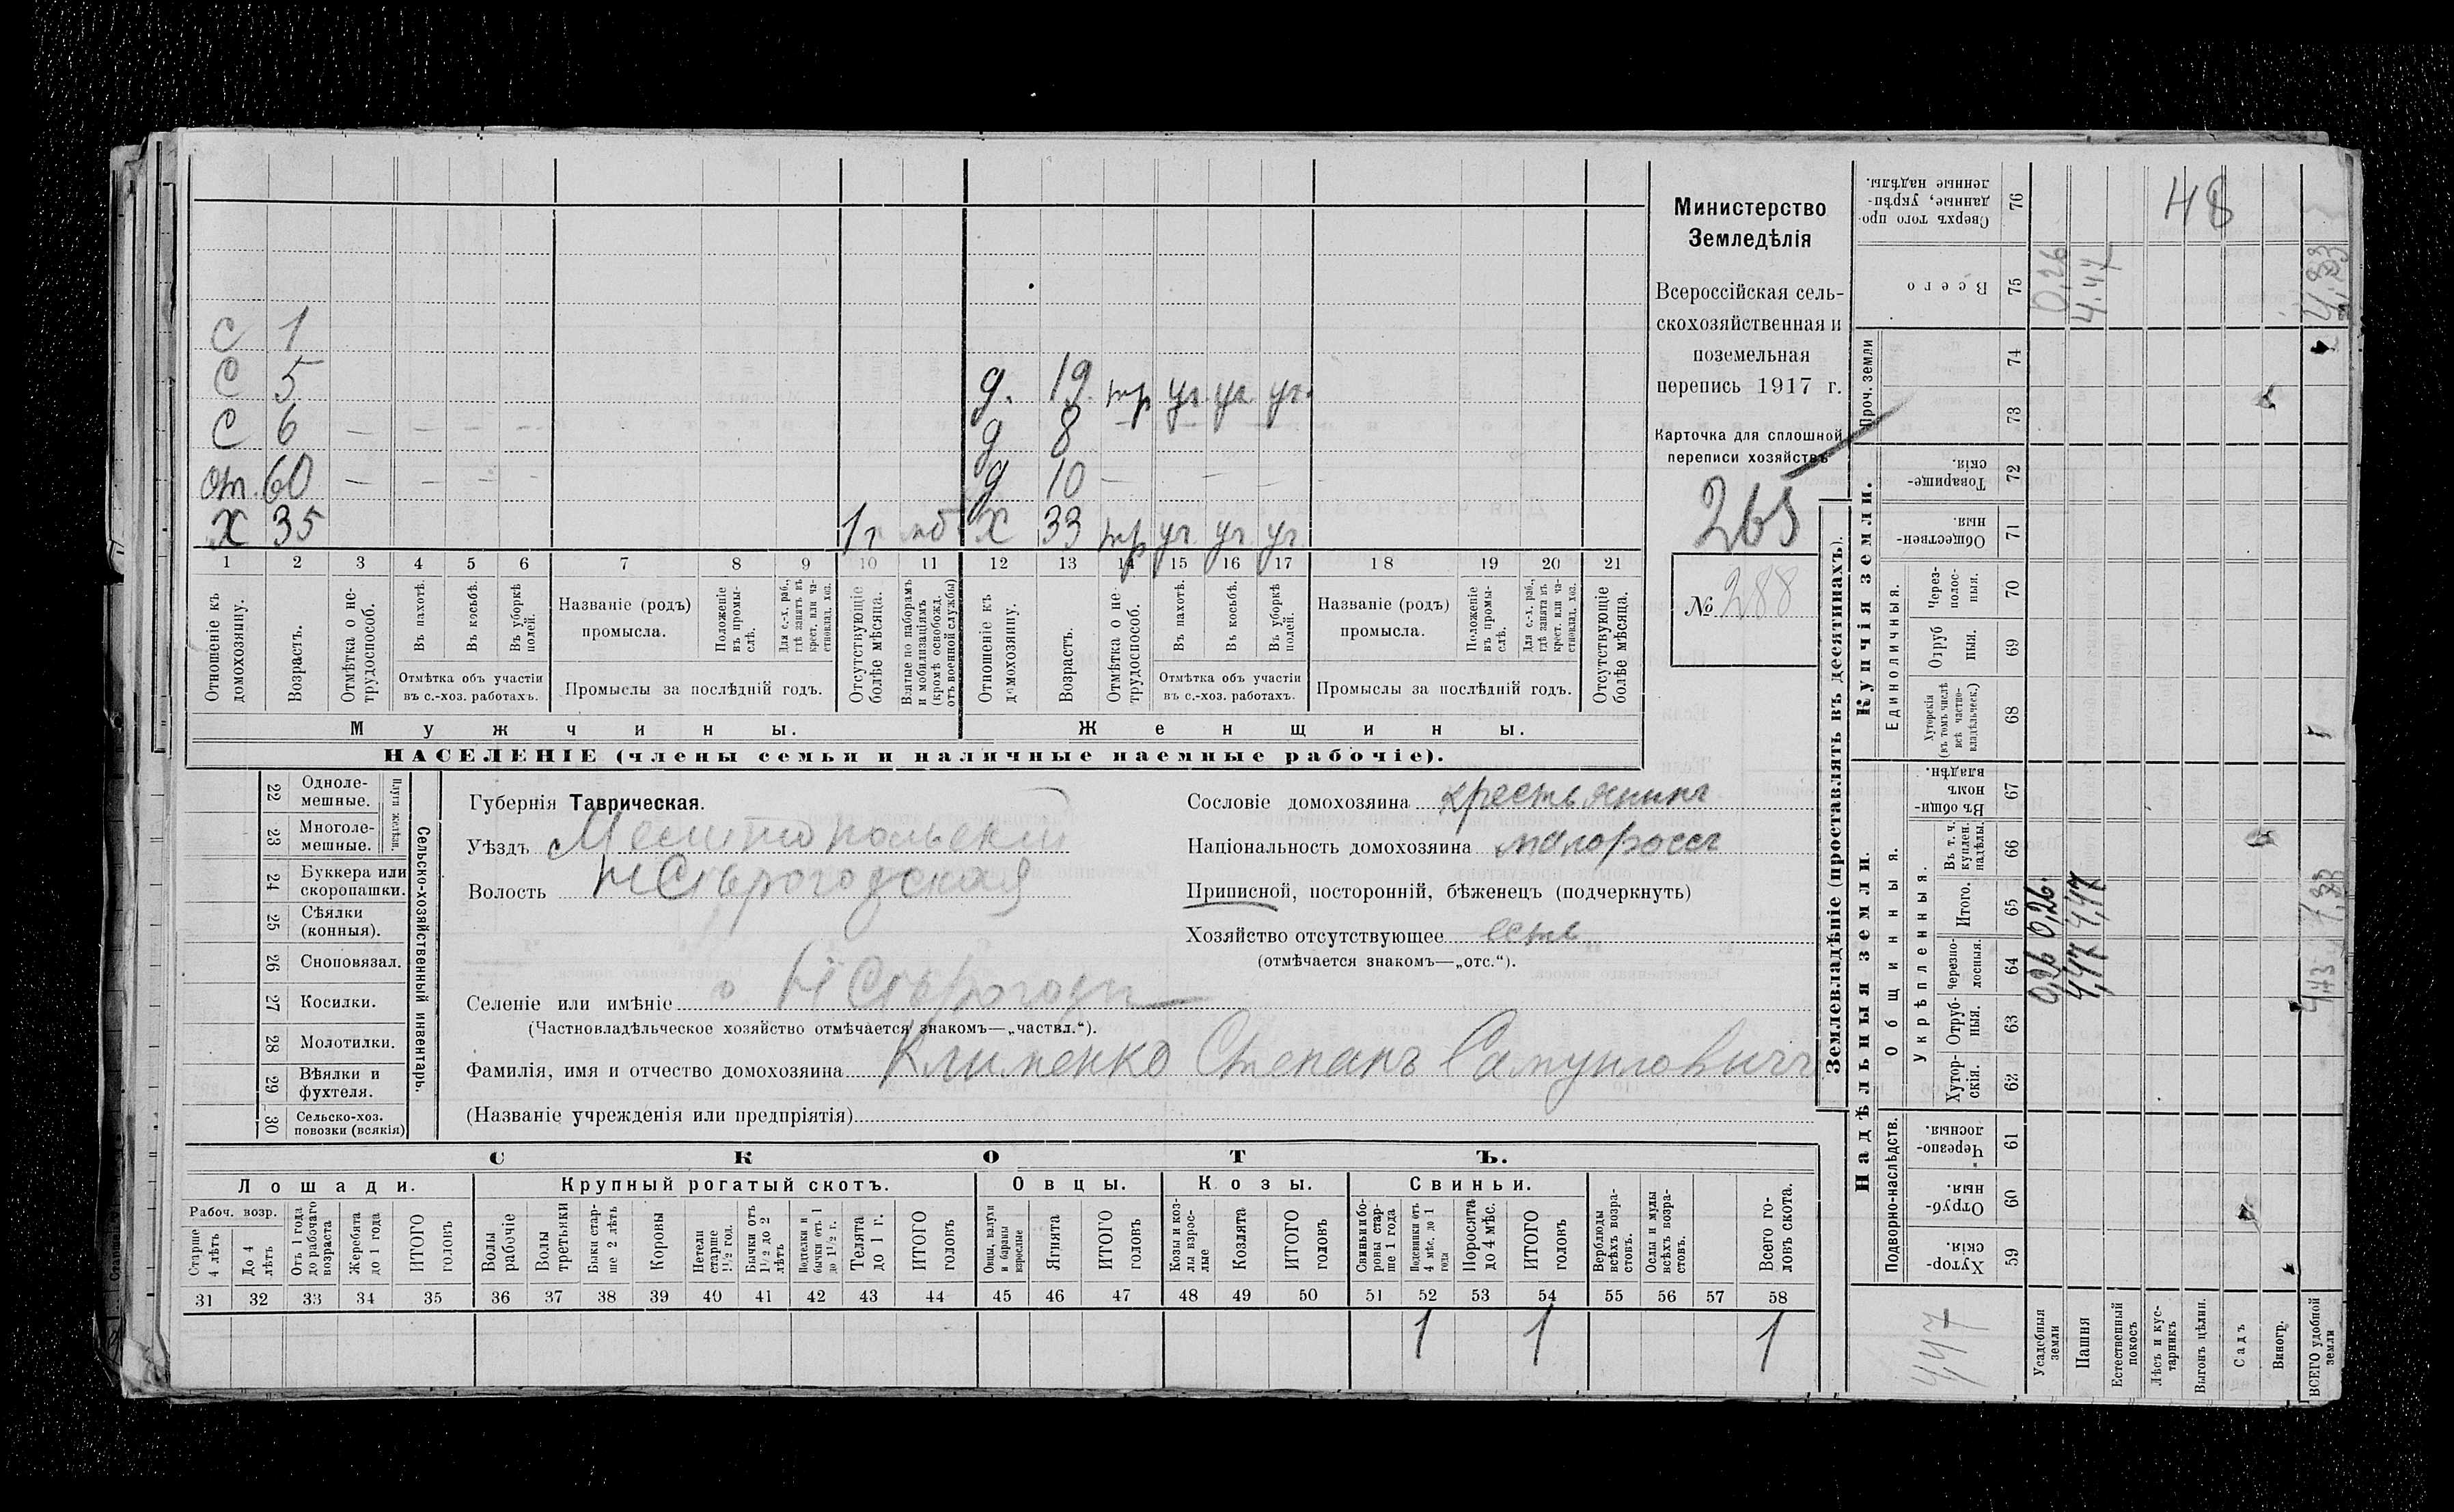 Министерство
Земледѣлія
Всероссійская сель-
скохозяйственная и
поземельная
перепись 1917 г.
Карточка для сплошной
переписи хозяйствъ
265
№ 288
с 1
с 5 д. 19 тр уч. уч. уч.
с 6 — — — — д 8
от. 60 — — — — д 10 — — —
х 35 1г мб х 33 тр уч уч уч
1 2 3 4 5 6 7 8 9 10 11 12 13 14 15 16 17 18 19 20 21
Отношеніе къ домохозяину.
Возрастъ.
Отмѣтка о не-трудоспособ.
Въ пахотѣ.
Въ косьбѣ.
Въ уборкѣ полей.
Отмѣтка объ участіи въ с.-хоз. работахъ.
Названіе (родъ) промысла.
Положеніе въ промы-слѣ.
Для с.-х. раб., гдѣ занятъ въ крест. или ча-стновлад. хоз.
Промыслы за послѣдній годъ.
Отсутствующіе болѣе мѣсяца.
Взятые по наборамъ и мобилизаціямъ (кромѣ освобожд. отъ военной службы)
Отношеніе къ домохозяину.
Возрастъ.
Отмѣтка о не-трудоспособ.
Въ пахотѣ.
Въ косьбѣ.
Въ уборкѣ полей.
Отмѣтка объ участіи въ с.-хоз. работахъ.
Названіе (родъ) промысла.
Положеніе въ промы-слѣ.
Для с.-х. раб., гдѣ занята въ крест. или ча-стновлад. хоз.
Промыслы за послѣдній годъ.
Отсутствующіе болѣе мѣсяца.
Мужчины. Женщины.
НАСЕЛЕНІЕ (члены семьи и наличные наемные рабочіе).
Сельско-хозяйственный инвентарь.
Плуги желѣзн.
22 Одноле-мешные.
23 Многоле-мешные.
24 Буккера или скоропашки.
25 Сѣялки (конныя).
26 Сноповязал.
27 Косилки.
28 Молотилки.
29 Вѣялки и фухтеля.
30 Сельско-хоз. повозки (всякія)
Губернія Таврическая.
Уѣздъ Мелитопольскій
Волость НСѣрогозская
Селеніе или имѣніе с НСѣрогозы
(Частновладѣльческое хозяйство отмѣчается знакомъ—„частвл.“).
Фамилія, имя и отчество домохозяина Клименко Степанъ Самуиловичъ
(Названіе учрежденія или предпріятія)
Сословіе домохозяина крестьянинъ
Національность домохозяина малороссъ
Приписной, посторонній, бѣженецъ (подчеркнуть)
Хозяйство отсутствующее есть
(отмѣчается знакомъ—„отс.“).
СКОТЪ.
Лошади. Крупный рогатый скотъ. Овцы. Козы. Свиньи.
Рабоч. возр.
Старше 4 лѣтъ
До 4 лѣтъ
Отъ 1 года до рабочаго возраста
Жеребята до 1 года
ИТОГО головъ
Волы рабочіе
Волы третьяки
Быки стар-ше 2 лѣтъ
Коровы
Нетели старше 1½ год.
Бычки отъ 1½ до 2 лѣтъ
Подтелки и бычки отъ 1 до 1½ г.
Телята до 1 г.
ИТОГО головъ
Овцы, валухи и бараны взрослые
Ягнята
ИТОГО головъ
Козы и коз-лы взрос-лые
Козлята
ИТОГО головъ
Свиньи и бо-ровы стар-ше 1 года
Подсвинки отъ 4 мѣс. до 1 года
Поросята до 4 мѣс.
ИТОГО головъ
Верблюды всѣхъ возра-стовъ.
Ослы и мулы всѣхъ возра-стовъ.
Всего го-ловъ скота.
31 32 33 34 35 36 37 38 39 40 41 42 43 44 45 46 47 48 49 50 51 52 53 54 55 56 57 58
1 1 1
Землевладѣніе (проставлять въ десятинахъ).
Надѣльныя земли. Купчія земли. Проч. земли
Подворно-наслѣдств.
Общинныя.
Укрѣпленныя.
Единоличныя.
59 Хутор-скія.
60 Отруб-ныя.
61 Черезпо-лосныя.
62 Хутор-скія.
63 Отруб-ныя.
64 Черезпо-лосныя.
65 Итого.
66 Въ т. ч. куплен. надѣлы.
67 Въ общин-номъ владѣн.
68 Хуторскія (въ томъ числѣ всѣ частно-владѣльческ.)
69 Отруб ныя.
70 Через-полос-ныя.
71 Обществен-ныя.
72 Товарище-скія.
73
74
75 Всего
76 Сверхъ того про-данные, укрѣп-ленные надѣлы.
4,47
Усадебныя земли 0,26 0,26. 0,26
Пашня 4,47 4,47 4.47
Естественный покосъ
Лѣсъ и кус-тарникъ
48
Выгонъ цѣлин.
Садъ
Виногр.
ВСЕГО удобной земли